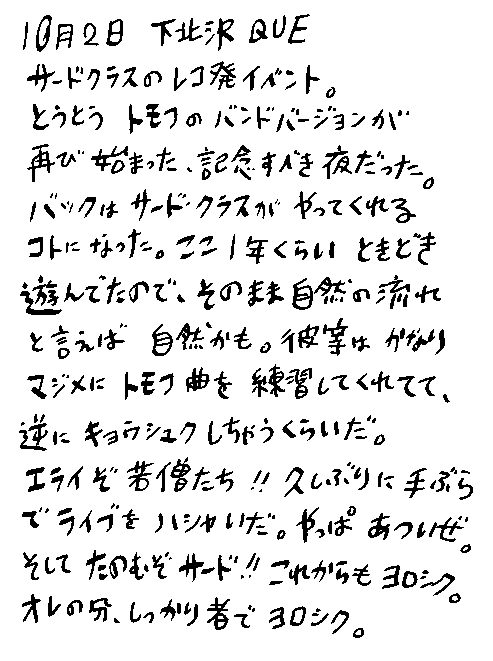 10月2日 下北沢 QUE
サードクラスのレコ発イベント。
とうとう トモフのバンドバージョンが
再び始まった、記念すべき夜だった。
バックは サード・クラスが やってくれる
コトになった。ここ1年くらい ときどき
遊んでたので、そのまま自然の流れ
と言えば 自然かも。彼等は かなり
マジメに トモフ曲を 練習してくれてて、
逆に キョウシュクしちゃうくらいだ。
エライぞ 若僧たち!! 久しぶりに 手ぶら
でライブを ハシャいだ。やっぱ あついぜ。
そして たのむぞ サード!! これからも ヨロシク。
オレの分、しっかり者で ヨロシク。